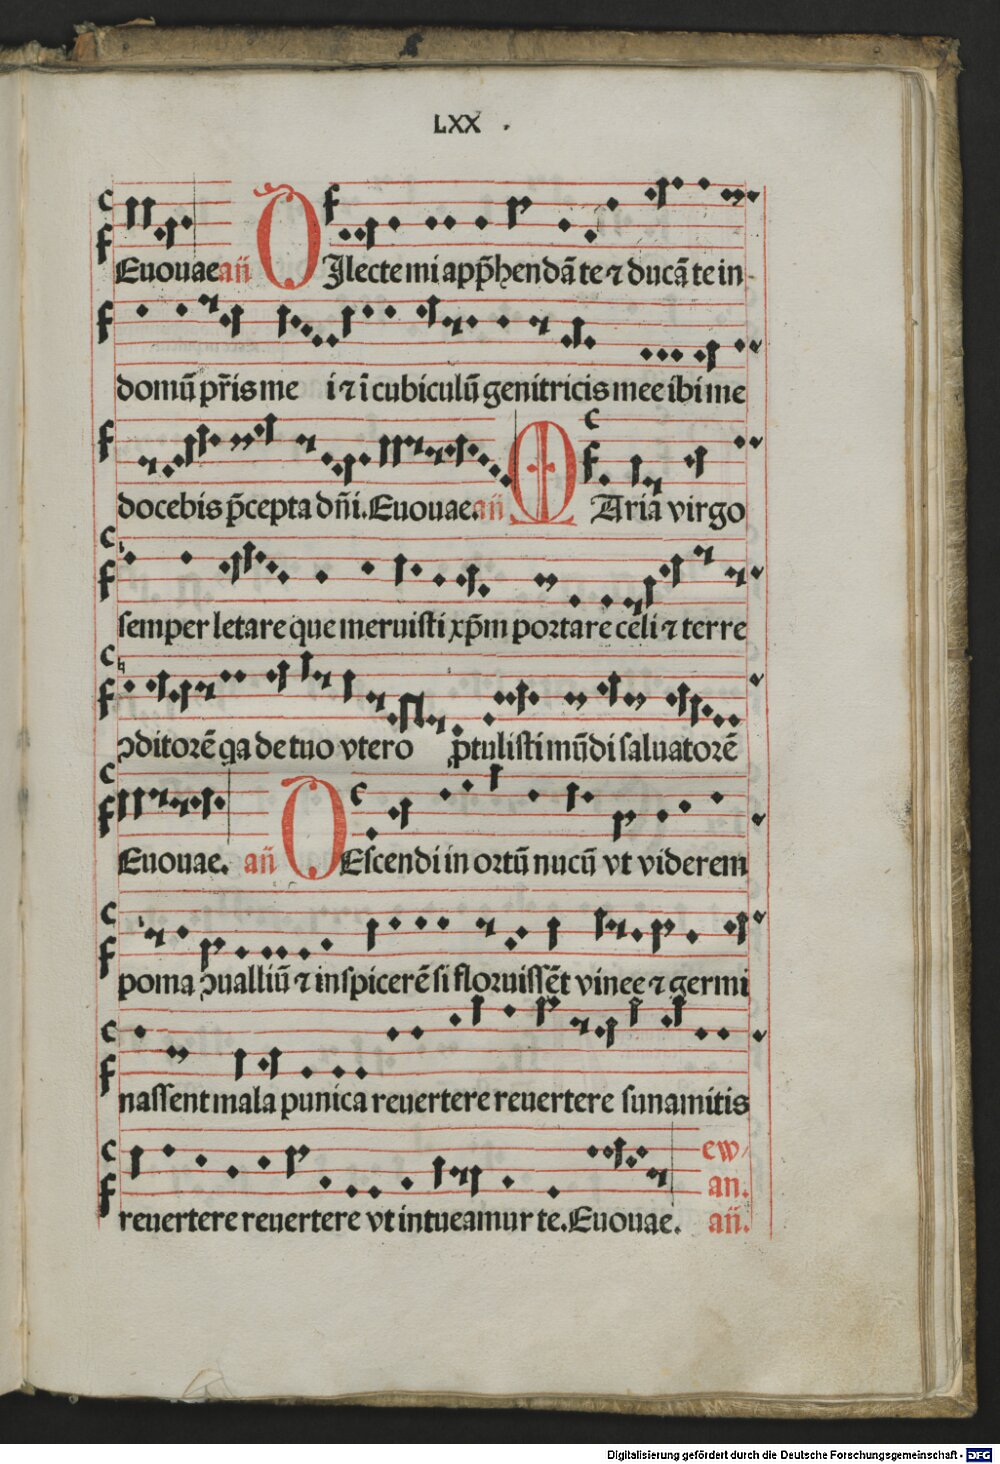 LXX .
Euouae an̄ DIlecte mi app̄hendā te ⁊ ducā te in
domū pr̄is me i ⁊ ī cubiculū genitricis mee ibi me
docebis p̄cepta dn̄i. Euouae. an̄ MAria virgo
semper letare que meruisti xp̄m portare celi ⁊ terre
ↄditorē qa de tuo vtero ꝓtulisti mūdi saluatorē
Euouae. an̄ DEscendi in ortū nucū vt viderem
poma ↄualliū ⁊ inspicerē si floruissēt vinee ⁊ germi
nassent mala punica reuertere reuertere sunamitis
ew
an.
reuertere reuertere vt intueamur te. Euouae. an̄.
Digitalisierung gefördert durch die Deutsche Forschungsgemeinschaft - DFG